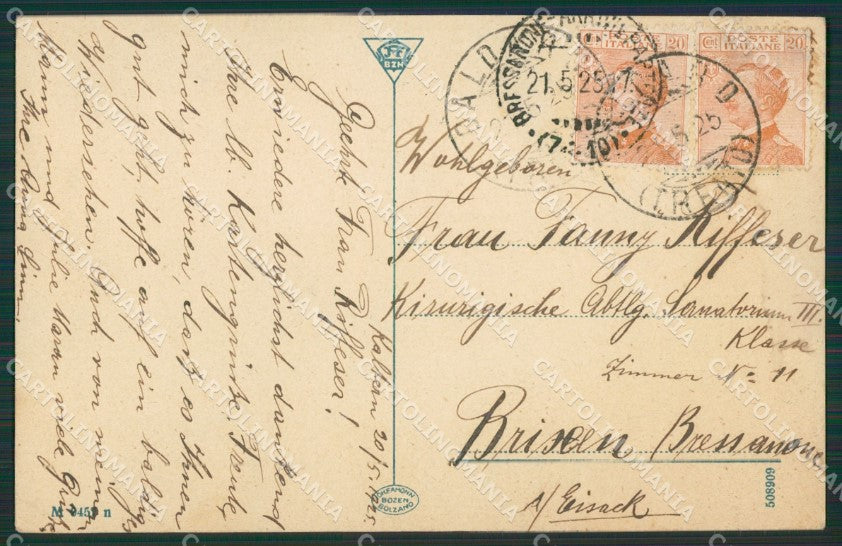 Kaltern 20/5. 1925.
Geehrte Frau Riffeser!
Erwiedere herzlichst dankend
Ihre lb. Kartengrüsse. Freute
mich zu hören, dass es Ihnen
gut geht, hoffe auf ein baldiges
Wiedersehen. Auch von meinem
Mann und Julie Maran viele Grüsse
Ihre
JTI
BZN
M 9459 n
BOZEN
BOLZANO
POSTE
ITALIANE
Cent 20
POSTE
ITALIANE
Cent 20
BRESSANONE
21.5.25.17
(7-10)
CALDARO
5.25
(TRENTO)
Wohlgeboren
Frau Fanny Riffeser
Kirurigische Abtlg. Sanatorium III.
Klasse
Zimmer No 11
Brixen Bressanone
a/Eisack
508909
CARTOLINOMANIA